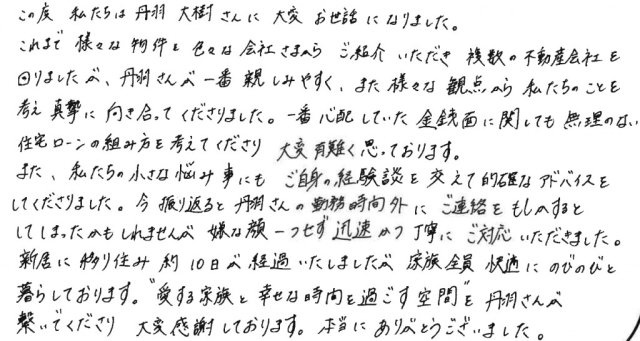 この度 私たちは 丹羽 大樹 さんに 大変 お世話 になりました。
これまで 様々な 物件を 色々な 会社 さまから ご紹介 いただき 複数の 不動産会社を
回りましたが、丹羽さんが 一番 親しみやすく、また 様々な 観点から 私たちのことを
考え 真摯に 向き合って くださりました。一番 心配していた 金銭面に関しても 無理のない
住宅ローンの組み方を考えてくださり 大変有難く思っております。
また、私たちの小さな悩み事にも ご自身の経験談を交えて的確なアドバイスを
してくださりました。今 振り返ると 丹羽さんの勤務時間外に ご連絡を もしかすると
してしまったかもしれませんが 嫌な顔一つせず 迅速かつ丁寧に ご対応いただきました。
新居に移り住み 約10日が経過いたしましたが 家族全員 快適に のびのびと
暮らしております。"愛する家族と 幸せな時間を過ごす空間"を 丹羽さんが
繋いでくださり 大変感謝しております。本当に ありがとうございました。